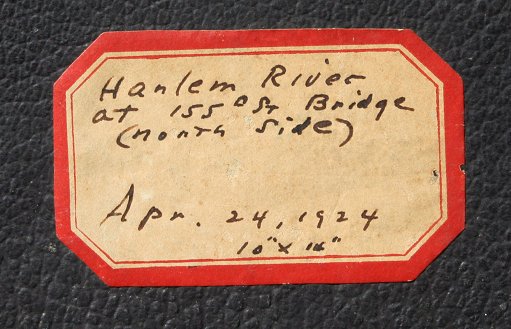 Harlem River
at 155 St Bridge
(North Side)
Apr. 24, 1924
10" x 14"